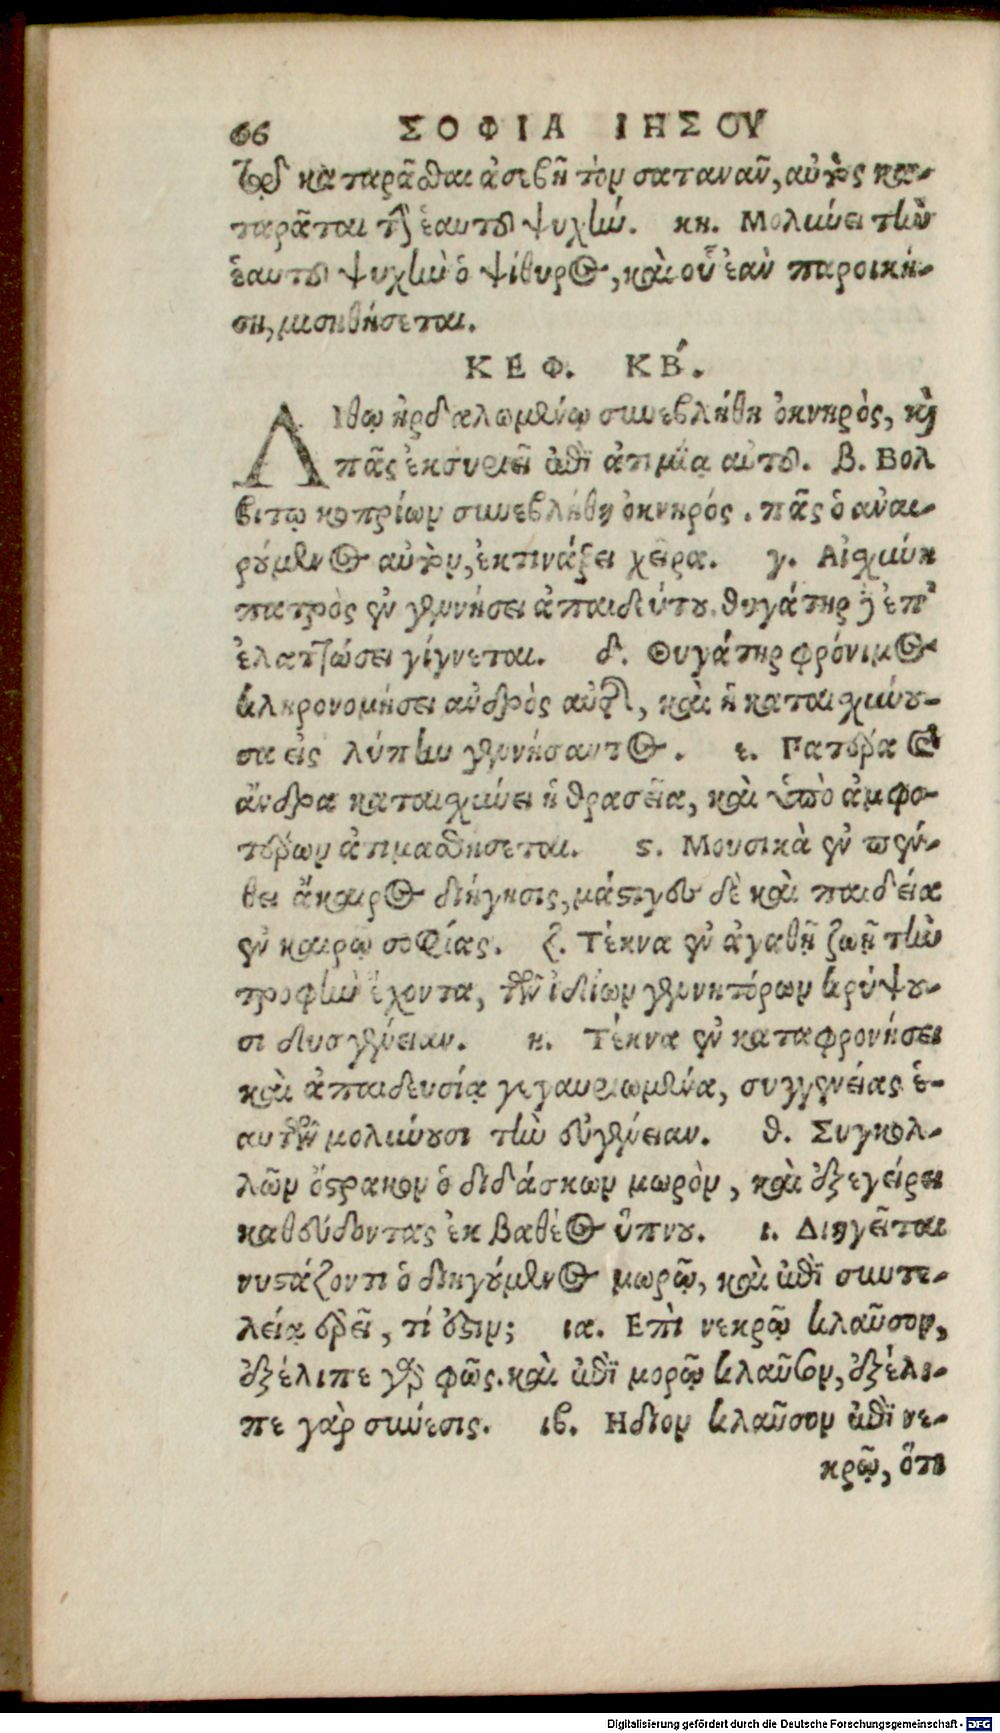 66 ΣΟΦΙΑ ΙΗΣΟΥ
τῷ καταρᾶσθαι ἀσεβῆ τὸν σατανᾶν, αὐτὸς κα-
ταρᾶται τὴν ἑαυτοῦ ψυχὴν. κη. Μολύνει τὴν
ἑαυτοῦ ψυχὴν ὁ ψίθυρος, καὶ οὗ ἐὰν παροική-
ση, μισηθήσεται.
ΚΕΦ. ΚΒ΄.
Λίθῳ ἠρδαλωμένῳ συνεβλήθη ὀκνηρὸς, καὶ
πᾶς ἐκσυριεῖ ἐπὶ ἀτιμίᾳ αὐτοῦ. β. Βολ
βίτῳ κοπρίων συνεβλήθη ὀκνηρός. πᾶς ὁ ἀναι-
ρούμενος αὐτὸν, ἐκτινάξει χεῖρα. γ. Αἰσχύνη
πατρὸς ἐν γεννήσει ἀπαιδεύτου. θυγάτηρ δ ἐπ'
ἐλαττώσει γίγνεται. δ. Θυγάτηρ φρόνιμος
κληρονομήσει ἀνδρὸς αὐτῆς, καὶ ἡ καταισχύνου-
σα εἰς λύπην γεννήσαντος. ε. Πατέρα καὶ
ἄνδρα καταισχύνει ἡ θρασεῖα, καὶ ὑπὸ ἀμφο-
τέρων ἀτιμασθήσεται. ϛ. Μουσικὰ ἐν πέν-
θει ἄκαιρος διήγησις, μάστιγες δὲ καὶ παιδεία
ἐν καιρῷ σοφίας. ζ. Τέκνα ἐν ἀγαθῇ ζωῇ τὴν
τροφὴν ἔχοντα, τῶν ἰδίων γεννητόρων κρύψου-
σι δυσγένειαν. η. Τέκνα ἐν καταφρονήσει
καὶ ἀπαιδευσίᾳ γεγαυριωμένα, συγγενείας ἑ-
αυτῶν μολύνουσι τὴν εὐγένειαν. θ. Συγκολ-
λῶν ὄστρακον ὁ διδάσκων μωρὸν, καὶ ἐξεγείρει
καθεύδοντας ἐκ βαθέος ὕπνου. ι. Διηγεῖται
νυστάζοντι ὁ διηγούμενος μωρῷ, καὶ ἐπὶ συντε-
λείᾳ ἐρεῖ, τί ἐστιν; ια. Επὶ νεκρῷ κλαῦσον,
ἐξέλιπε γὰρ φῶς. καὶ ἐπὶ μορῷ κλαῦσον, ἐξέλι-
πε γὰρ σύνεσις. ιβ. Ηδιον κλαῦσον ἐπὶ νε-
κρῷ, ὅτι
Digitalisierung gefördert durch die Deutsche Forschungsgemeinschaft - DFG